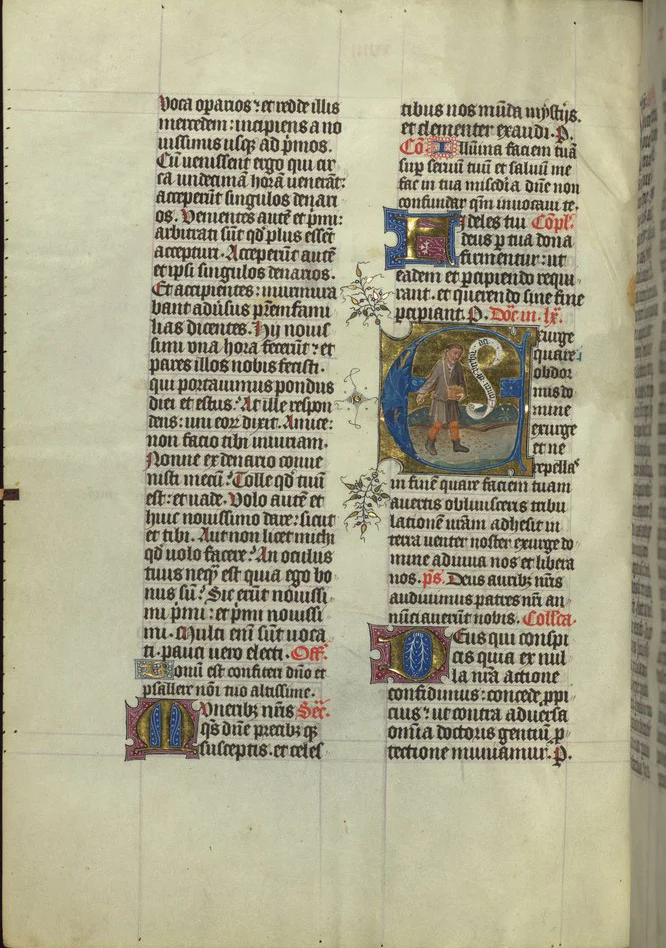 voca op̄arios ⁊ et redde illis
mercedem : incipiens a no
vissimis usq̄ ad p̄mos.
Cū venissent ergo qui cir
ca undecimā horā venerāt :
acceperūt singulos denari
os. Venientes autē et p̄mi :
arbitrati sūt qd̄ plus essēt
accepturi. Acceperūt autē
et ipsi singulos denarios.
Et accipientes : murmura
bant adūsus p̄remfami
lias dicentes. Hij novis
simi una hora fecerūt ⁊ et
pares illos nobis fecisti.
qui portavimus pondus
diei et estus. At ille respon
dens : uni eorꝝ dixit. Amice :
non facio tibi iniuriam.
Nonne ex denario conve
nisti mecū? Tolle qd̄ tuū
est : et vade. Volo autē et
huic novissimo dare : sicut
et tibi. Aut non licet michi
qd̄ volo facere? An oculus
tuus neqꝫ est quia ego bo
nus sū? Sic erūt novissi
mi p̄mi : et p̄mi novissi
mi. Multi enī sūt voca
ti. pauci vero electi. Off.
Bonū est confiteri dn̄o et
psallere noī tuo altissime.
Muneribꝫ nr̄is Secr̄.
qs̄ dn̄e precibꝫ qꝫ
susceptis. et celes
tibus nos mūda mysterijs.
et clementer exaudi. P.
Cō. Illūina faciem tuā
sup servū tuū et salvū me
fac in tua misc̄dia dn̄e non
confundar qm̄ invocavi te.
Fideles tui Cōpl.
deus p tua dona
firmentur : ut
eadem et pcipiendo requi
rant. et querendo sine fine
pcipiant. P. Dōc in. lx.
Exurge
quare
obdor
mis do
mine
exurge
et ne
repellas
in finē quare faciem tuam
avertis oblivisceris tribu
lationē nr̄am adhesit in
terra venter noster exurge do
mine adiuva nos et libera
nos. ps̄. Deus auribꝫ nr̄is
audivimus patres nr̄i an
nūciaverūt nobis. Collc̄a.
Deus qui conspi
cis quia ex nul
la nr̄a actione
confidimus : concede ppi
cius ⁊ ut contra adversa
omīa doctoris gentiū p
tectione muniamur. P.